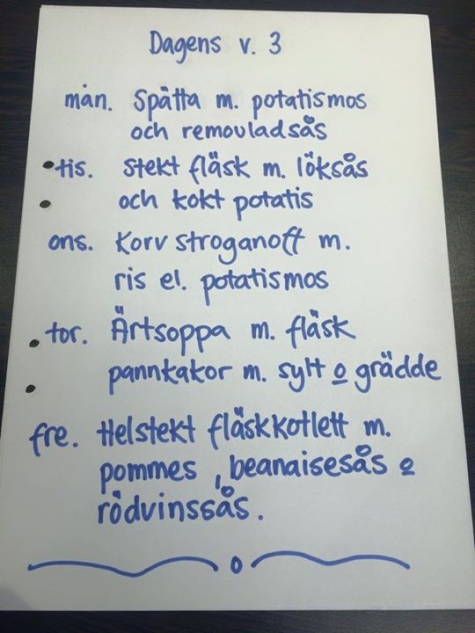 Dagens v. 3
mån. Spätta m. potatismos
och removladsås
tis. stekt fläsk m. löksås
och kokt potatis
ons. Korv stroganoff m.
ris el. potatismos
tor. Ärtsoppa m. fläsk
pannkakor m. sylt o grädde
fre. Helstekt fläskkotlett m.
pommes, beanaisesås o
rödvinssås.